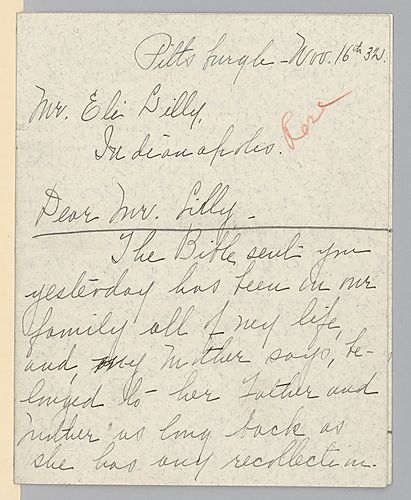 Pittsburgh - Nov. 16th 32.
Mr. Eli Lilly,
Rose
Indianapolis.
Dear Mr. Lilly, -
The Bible sent you
yesterday has been in our
family all of my life,
and, my Mother says, be-
longed to her Father and
Mother as long back as
she has any recollection.